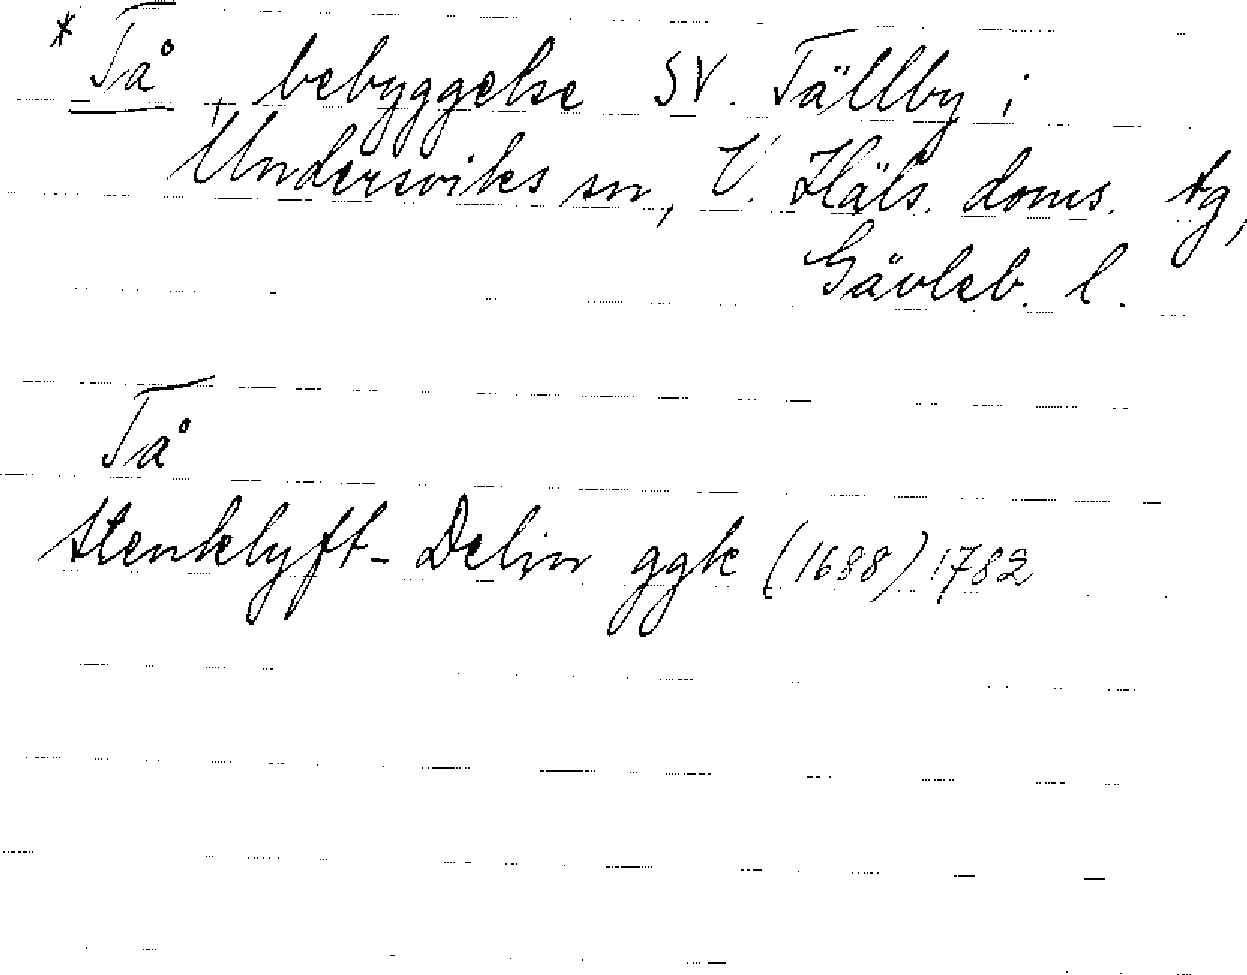 * Tå, bebyggelse SV. Tällby i
Undersviks sn, V. Häls. doms. tg,
Gävleb. l.
Tå
Stenklyft- Delin ggk (1688) 1782